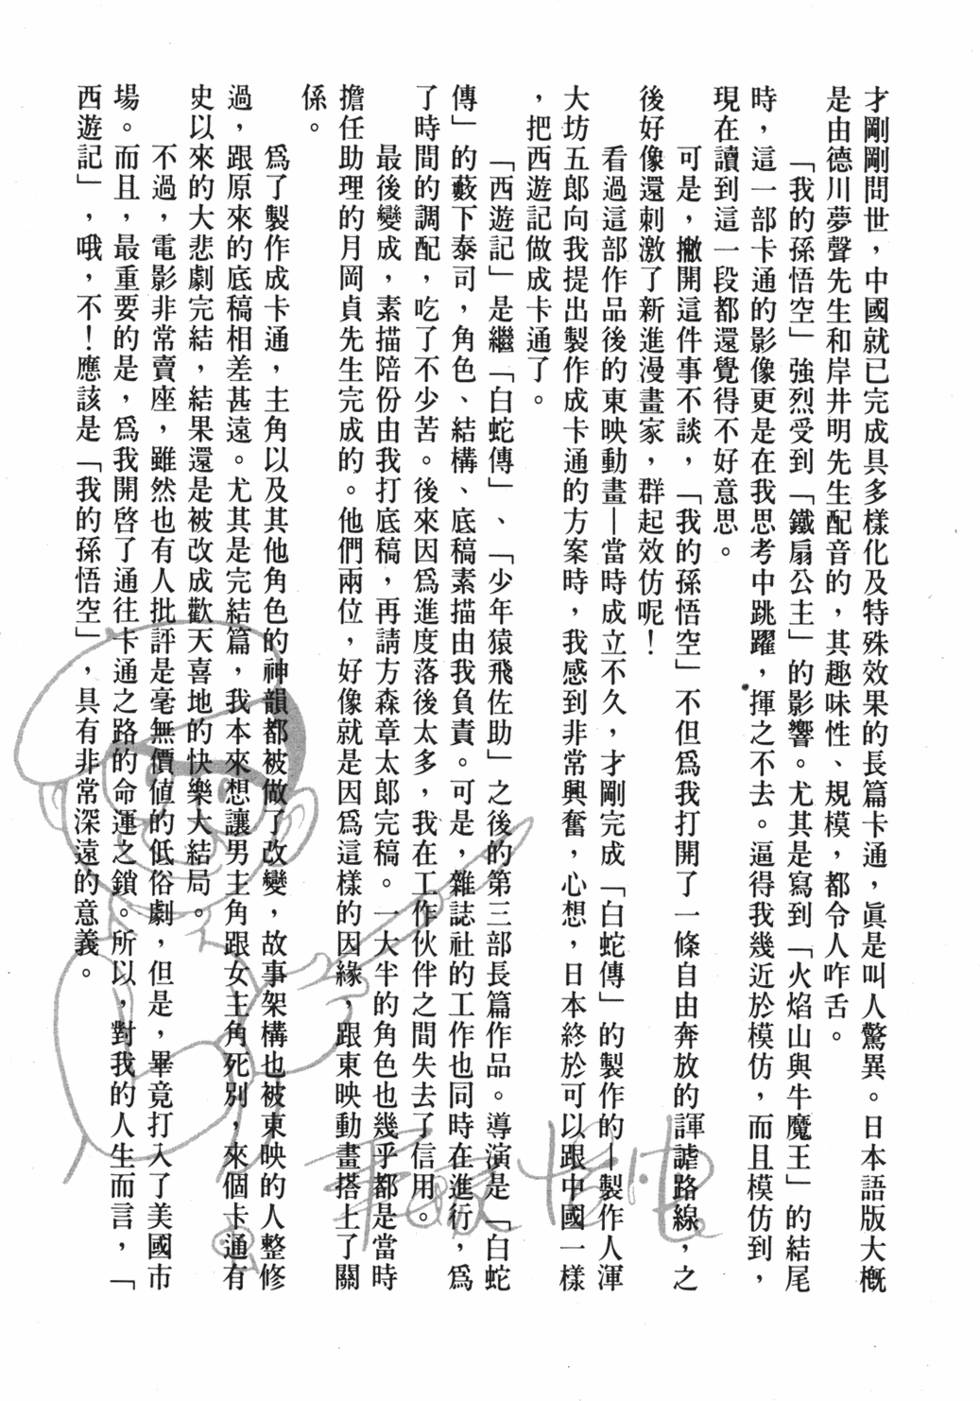 才剛剛問世，中國就已完成具多樣化及特殊效果的長篇卡通，眞是叫人驚異。日本語版大概
是由德川夢聲先生和岸井明先生配音的，其趣味性、規模，都令人咋舌。
「我的孫悟空」強烈受到「鐵扇公主」的影響。尤其是寫到「火焰山與牛魔王」的結尾
時，這一部卡通的影像更是在我思考中跳躍，揮之不去。逼得我幾近於模仿，而且模仿到，
現在讀到這一段都還覺得不好意思。
可是，撇開這件事不談，「我的孫悟空」不但爲我打開了一條自由奔放的諢謔路線，之
後好像還刺激了新進漫畫家，群起效仿呢！
看過這部作品後的東映動畫—當時成立不久，才剛完成「白蛇傳」的製作的—製作人渾
大坊五郎向我提出製作成卡通的方案時，我感到非常興奮，心想，日本終於可以跟中國一樣
，把西遊記做成卡通了。
「西遊記」是繼「白蛇傳」、「少年猿飛佐助」之後的第三部長篇作品。導演是「白蛇
傳」的藪下泰司，角色、結構、底稿素描由我負責。可是，雜誌社的工作也同時在進行，爲
了時間的調配，吃了不少苦。後來因爲進度落後太多，我在工作伙伴之間失去了信用。
最後變成，素描陪份由我打底稿，再請方森章太郎完稿。一大半的角色也幾乎都是當時
擔任助理的月岡貞先生完成的。他們兩位，好像就是因爲這樣的因緣，跟東映動畫搭上了關
係。
爲了製作成卡通，主角以及其他角色的神韻都被做了改變，故事架構也被東映的人整修
過，跟原來的底稿相差甚遠。尤其是完結篇，我本來想讓男主角跟女主角死別，來個卡通有
史以來的大悲劇完結，結果還是被改成歡天喜地的快樂大結局。
不過，電影非常賣座，雖然也有人批評是毫無價値的低俗劇，但是，畢竟打入了美國市
場。而且，最重要的是，爲我開啓了通往卡通之路的命運之鎖。所以，對我的人生而言，「
西遊記」，哦，不！應該是「我的孫悟空」，具有非常深遠的意義。